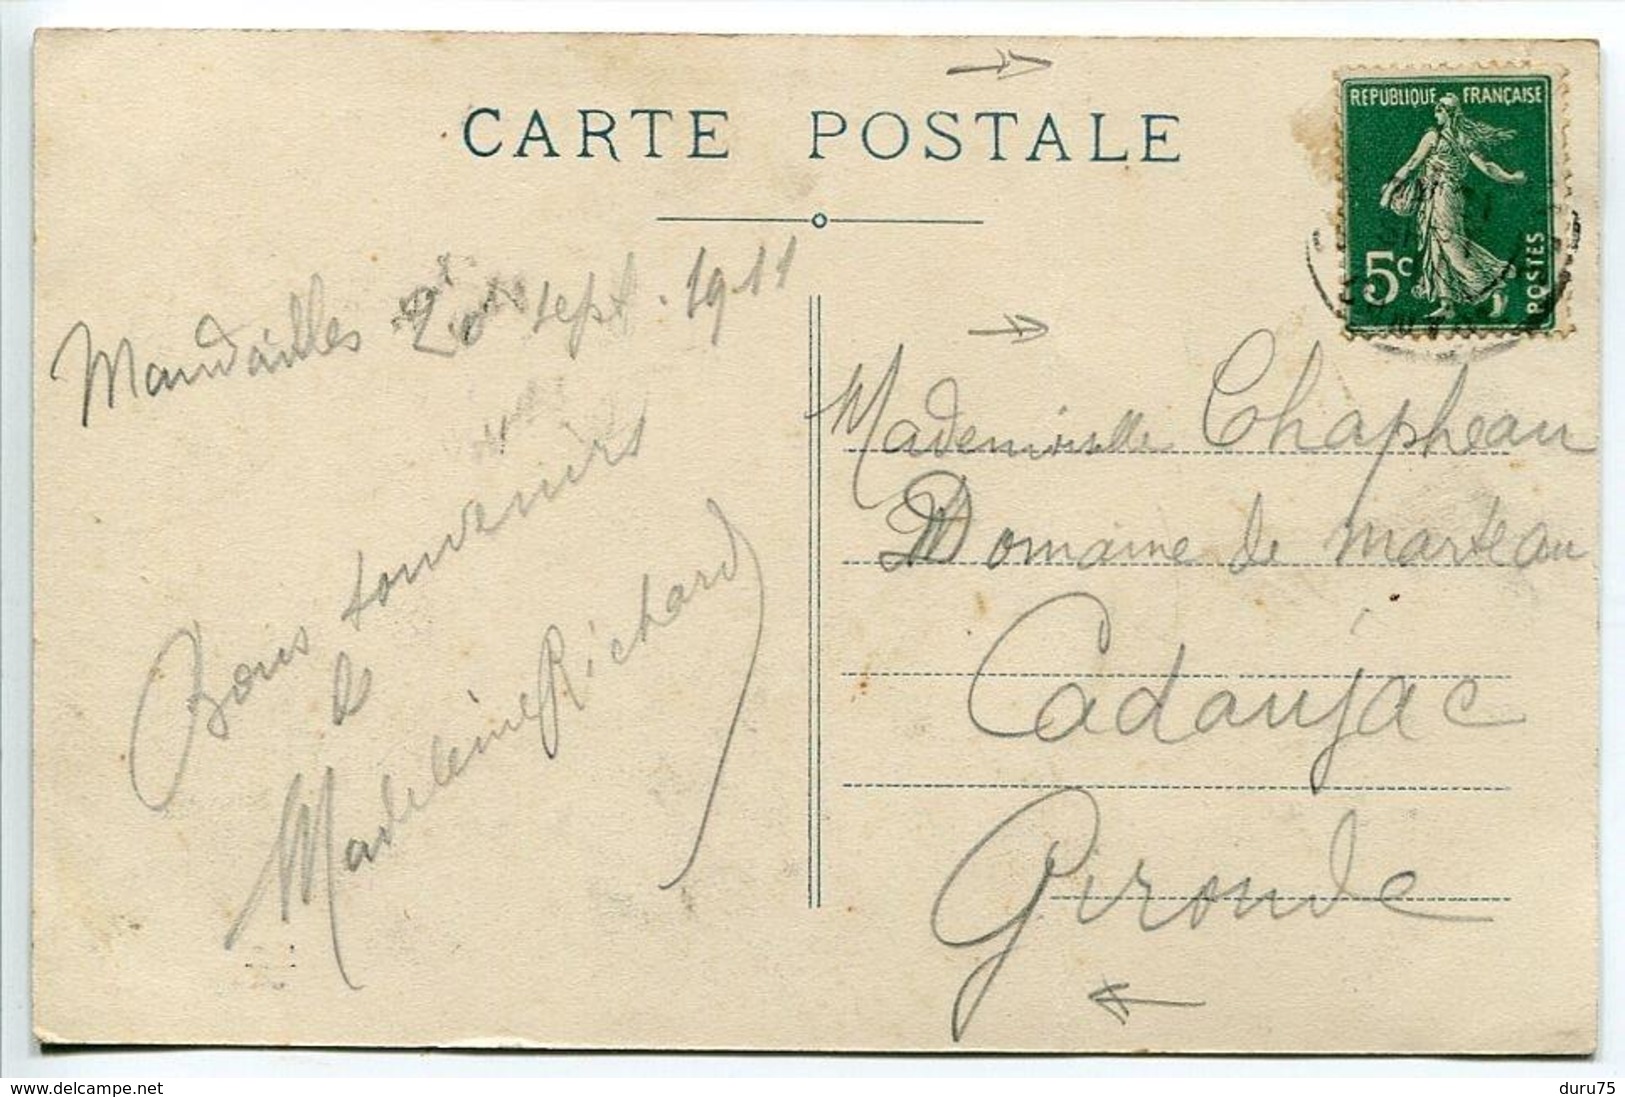 CARTE POSTALE
REPUBLIQUE FRANÇAISE
5c
POSTES
Mandailles 20 sept. 1911
Bons souvenirs
de
Madeleine Richard
Mademoiselle Chapheau
Domaine de marteau
Cadaujac
Gironde
www.delcampe.net
duru75